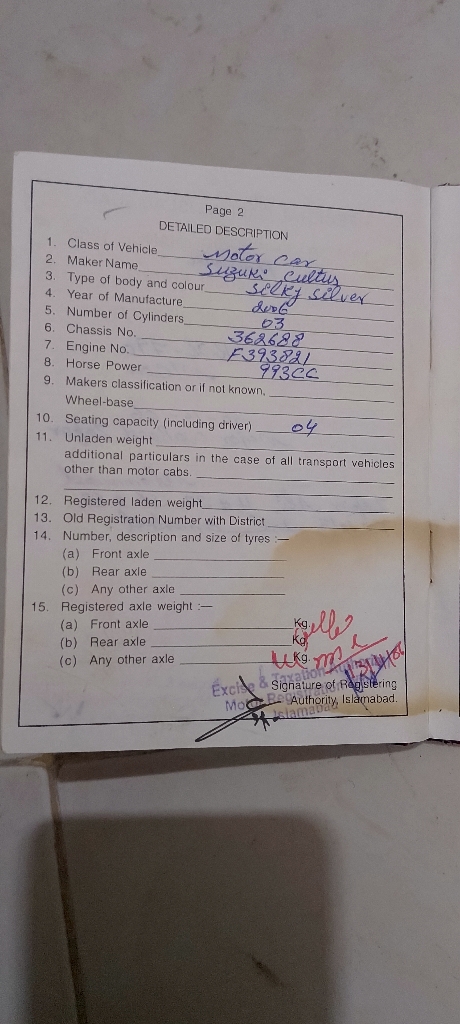 Page 2
DETAILED DESCRIPTION
1. Class of Vehicle Motor Car
2. Maker Name Suzuki Cultus
3. Type of body and colour Silky Silver
4. Year of Manufacture 2006
5. Number of Cylinders 03
6. Chassis No. 362688
7. Engine No. F393821
8. Horse Power 993CC
9. Makers classification or if not known,
Wheel-base
10. Seating capacity (including driver) 04
11. Unladen weight
additional particulars in the case of all transport vehicles
other than motor cabs.
12. Registered laden weight
13. Old Registration Number with District
14. Number, description and size of tyres :—
(a) Front axle
(b) Rear axle
(c) Any other axle
15. Registered axle weight :—
(a) Front axle Kg.
(b) Rear axle Kg.
(c) Any other axle Kg.
Excise & Taxation
Signature of Registering
Authority, Islamabad.
Islamabad